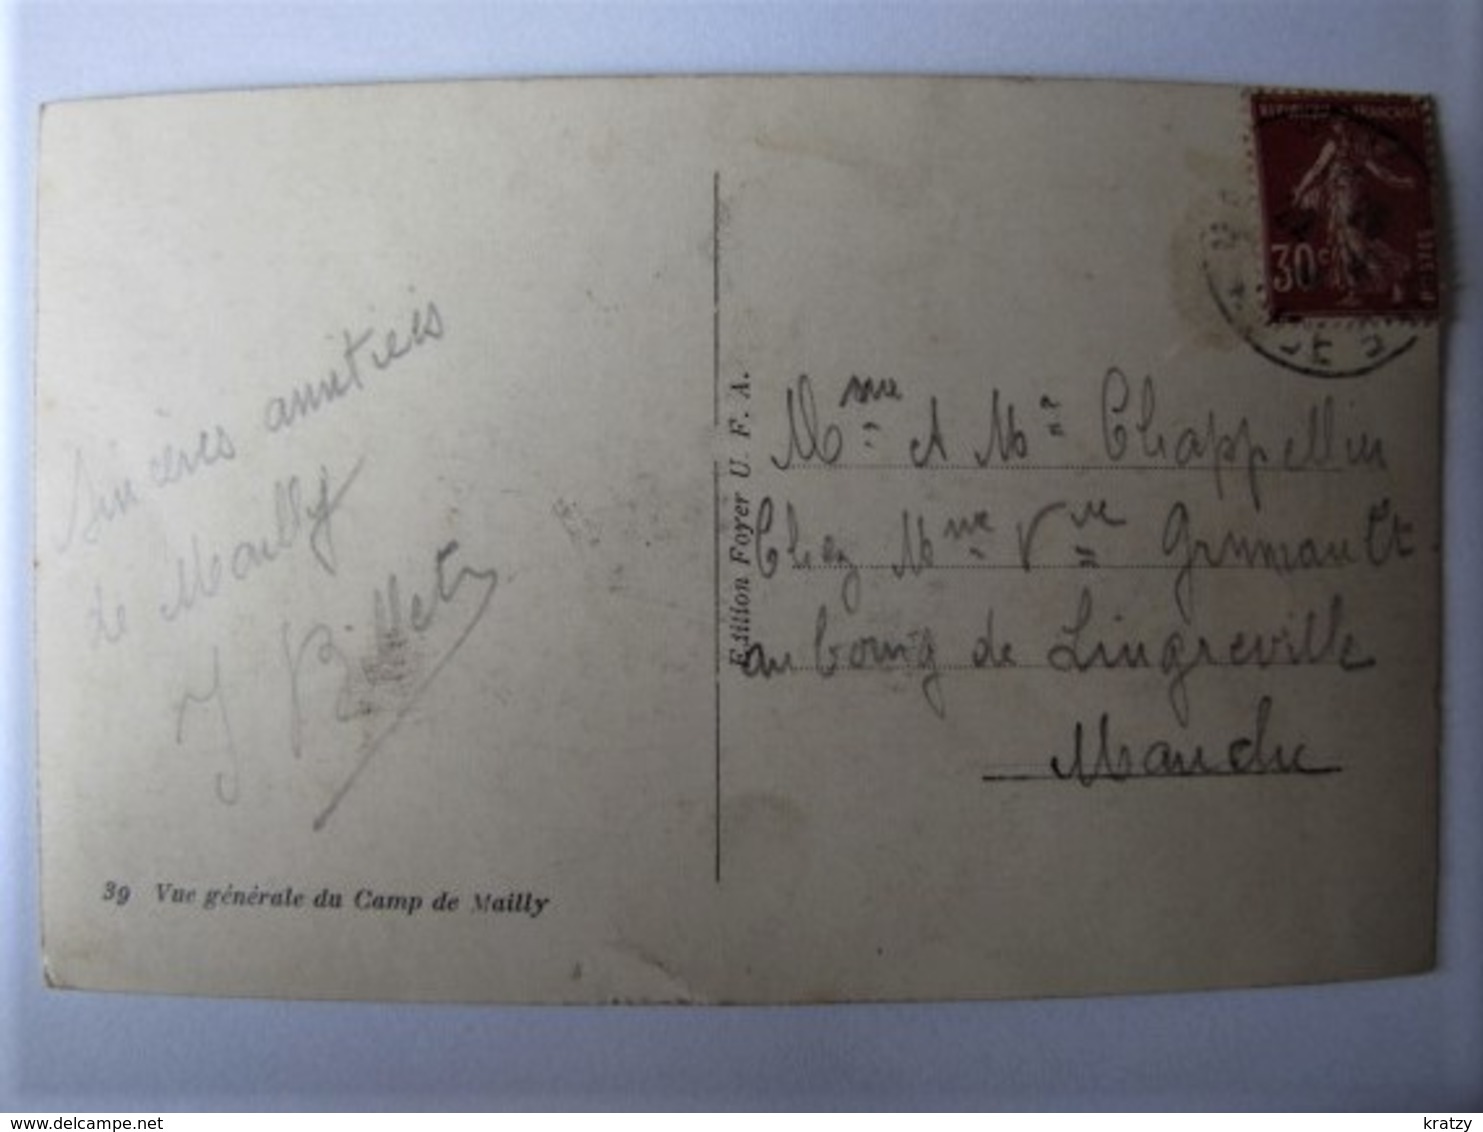 Sincères amitiés
de Mailly
J Billet
39 Vue générale du Camp de Mailly
Edition Foyer U. F. A.
REPUBLIQUE FRANÇAISE
30c
Mme & Mr Chappellin
Chez Mme Vve Grimault
au bourg de Lingreville
Manche
delcampe.net
kratzy